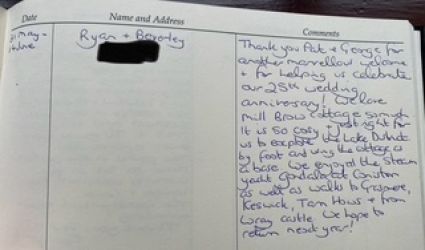 Date Name and Address Comments
31 May -
Ryan + Beverley
Thank you Pat + George for
another marvellous welcome
+ for helping us celebrate
our 25th wedding
anniversary! We love
Mill Brow cottage so much
It is so cosy + just right for
us to explore the Lake District
by foot and using the cottage as
a base. We enjoyed the Steam
yacht Gondola at Coniston
as well as walks to Grasmere,
Keswick, Tarn Hows + from
Wray castle. We hope to
return next year!